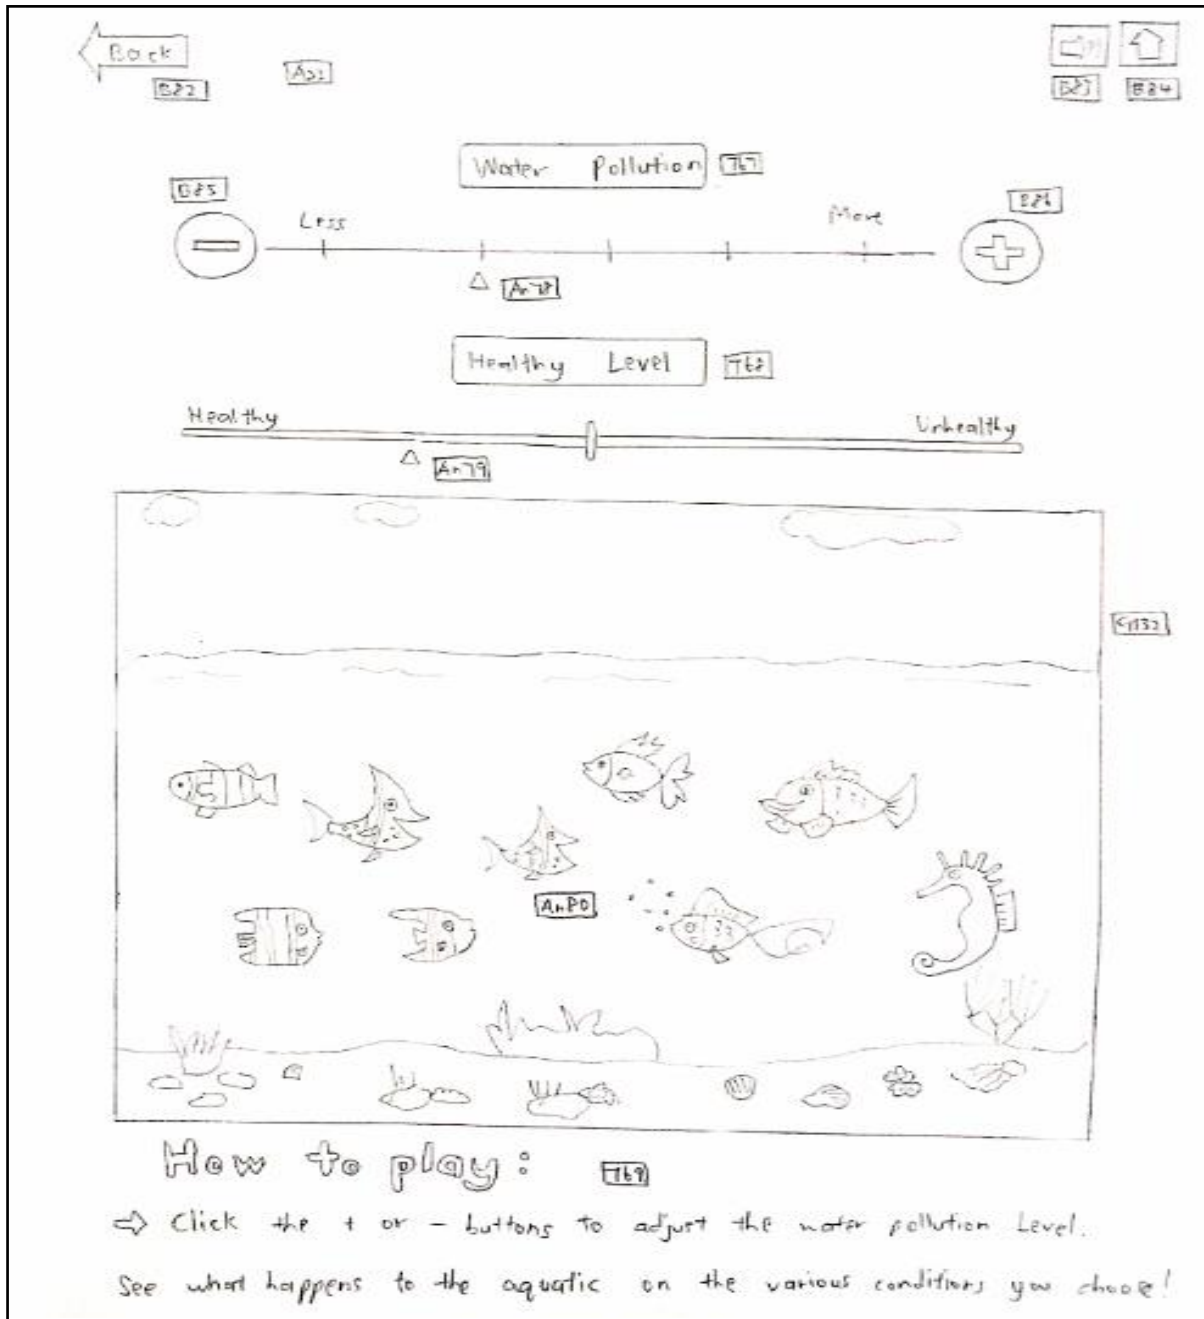 Back
B82
B83 B84
Water Pollution T67
B85
B86
Less
More
An78
Healthy Level T68
Healthy
Unhealthy
An79
An80
How to play: T69
⇨ Click the + or - buttons to adjust the water pollution Level.
See what happens to the aquatic on the various conditions you choose!